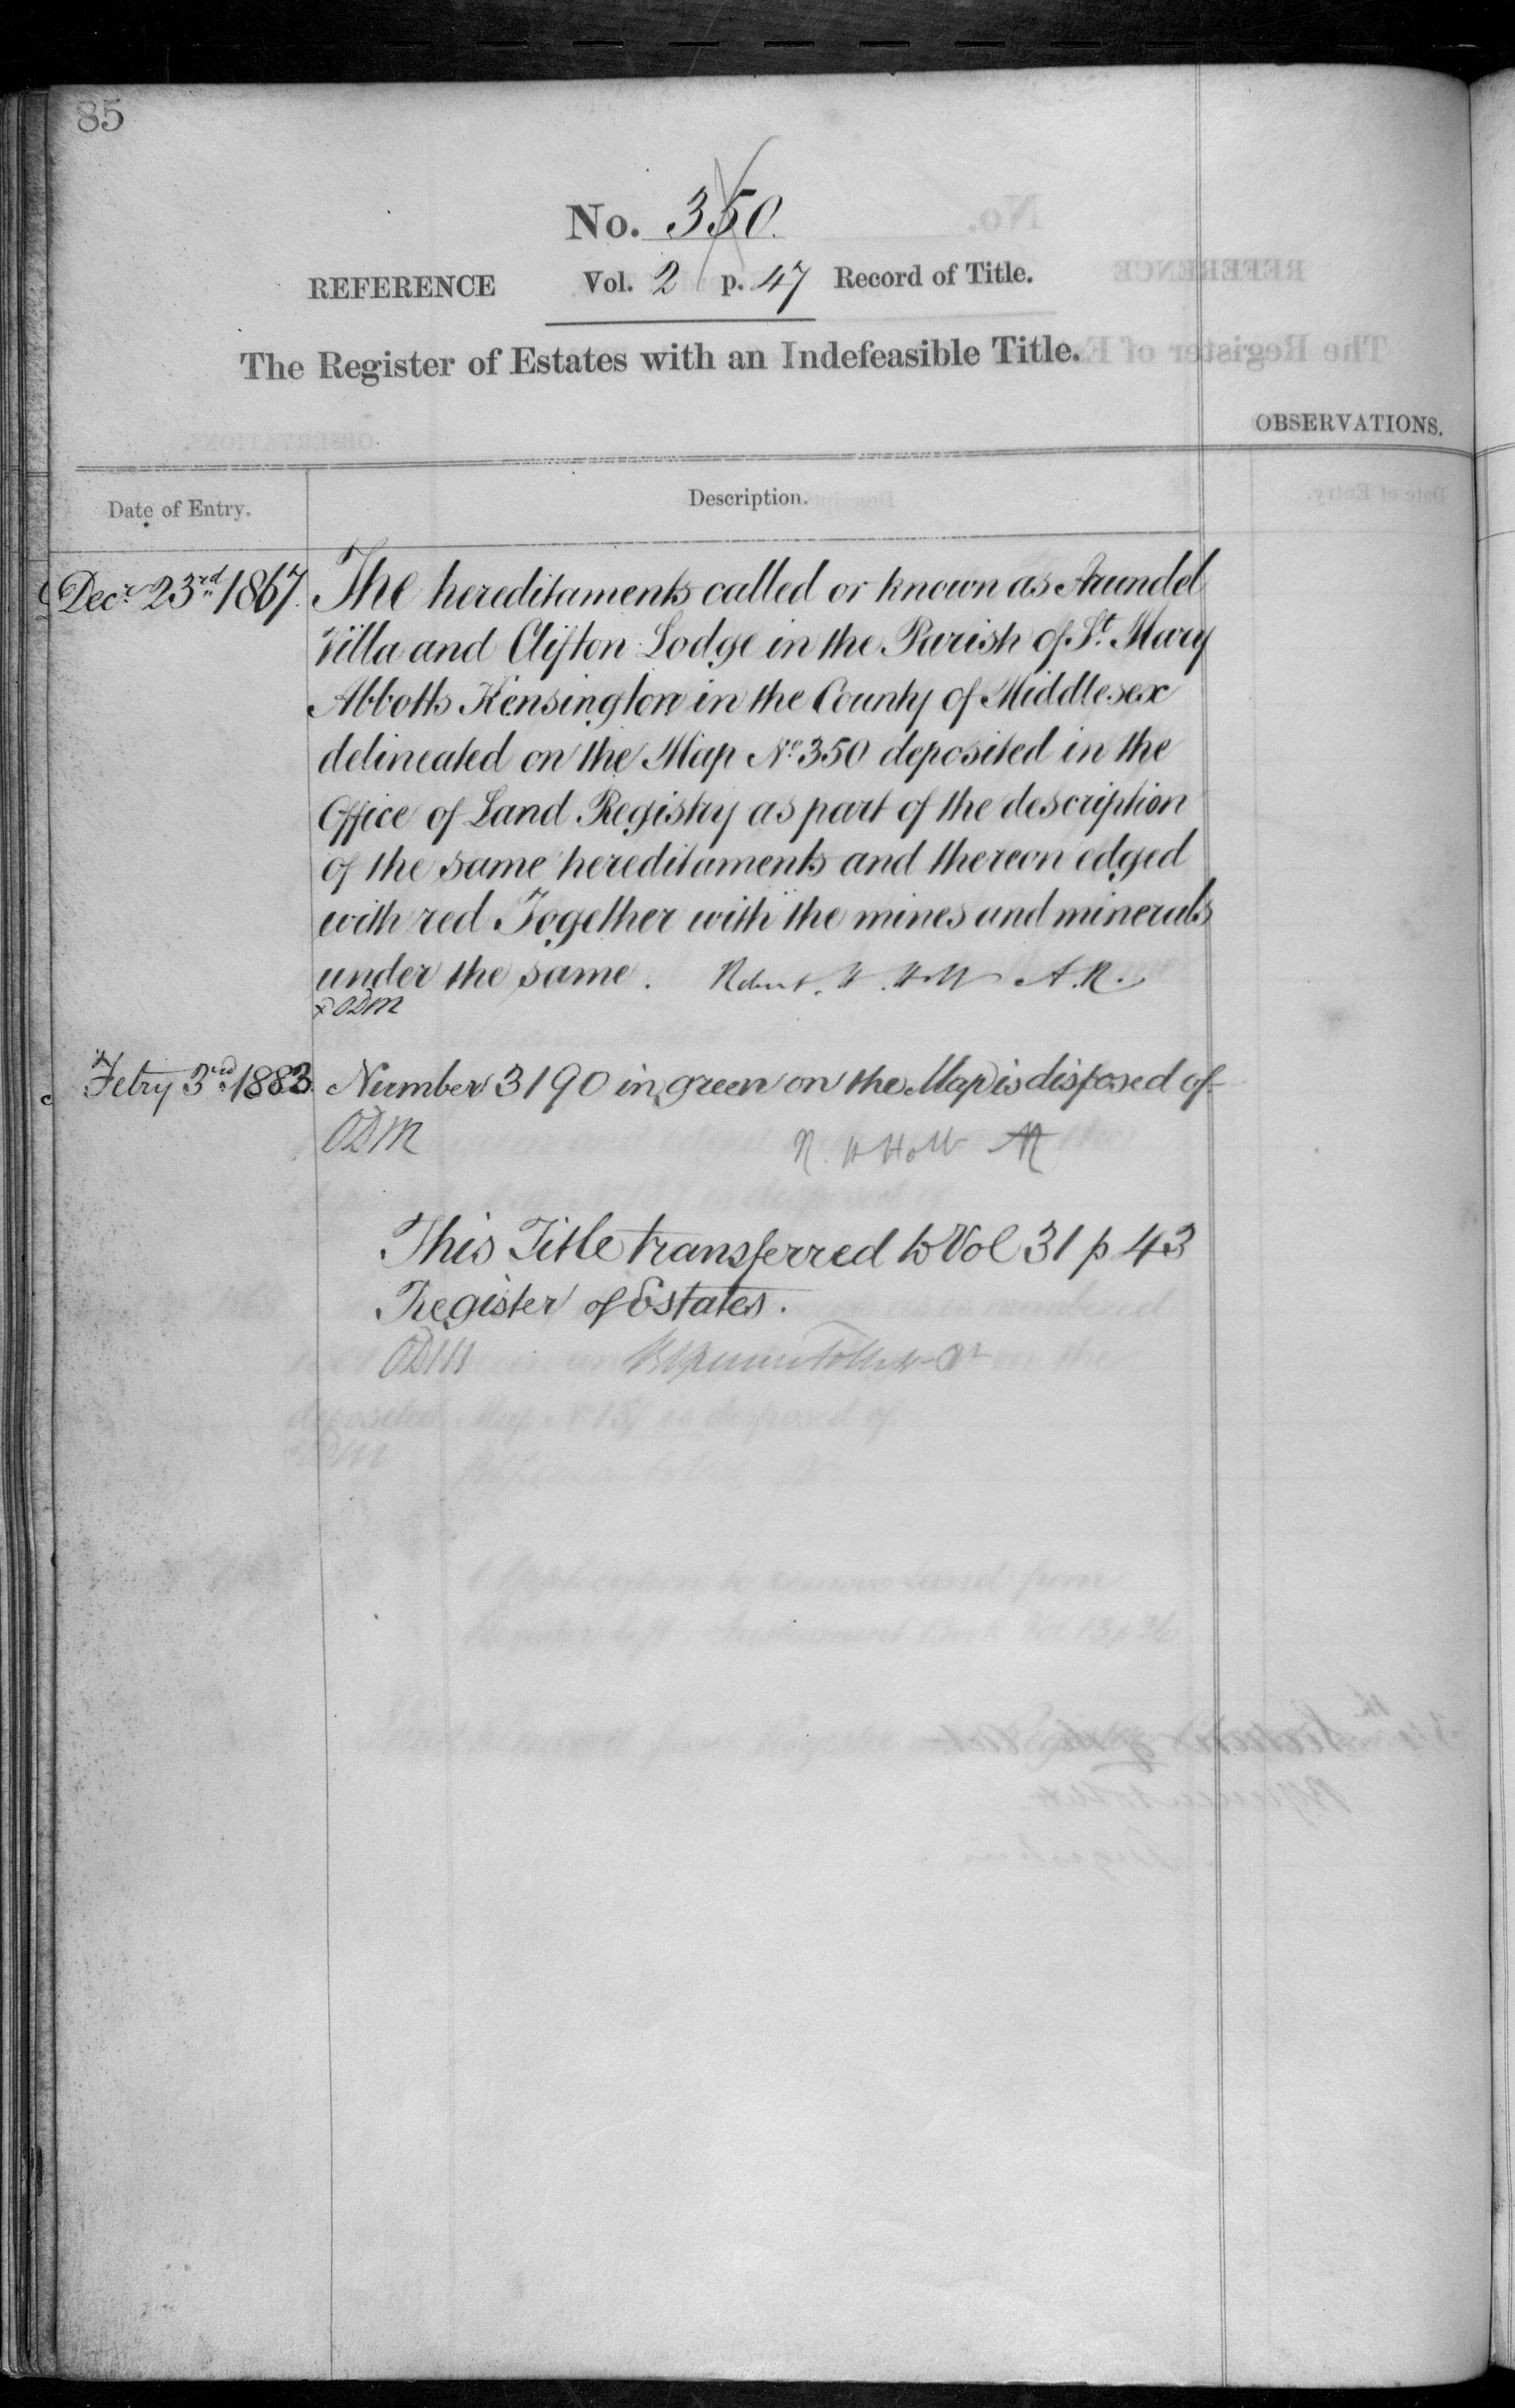 85
No. 350.
REFERENCE Vol. 2 p. 47 Record of Title.
The Register of Estates with an Indefeasible Title.
OBSERVATIONS.
Date of Entry. Description.
Decr 23rd 1867. The hereditaments called or known as Arundel
Villa and Clifton Lodge in the Parish of St. Mary
Abbotts Kensington in the County of Middlesex
delineated on the Map No 350 deposited in the
Office of Land Registry as part of the description
of the same hereditaments and thereon edged
with red Together with the mines and minerals
under the same. Robert. H. Holt A.R.
x ODM
Febry 3rd 1883. Number 3190 in green on the Map is disposed of
ODM R. H Holt AR
This Title transferred to Vol 31 p 43
Register of Estates.
ODM